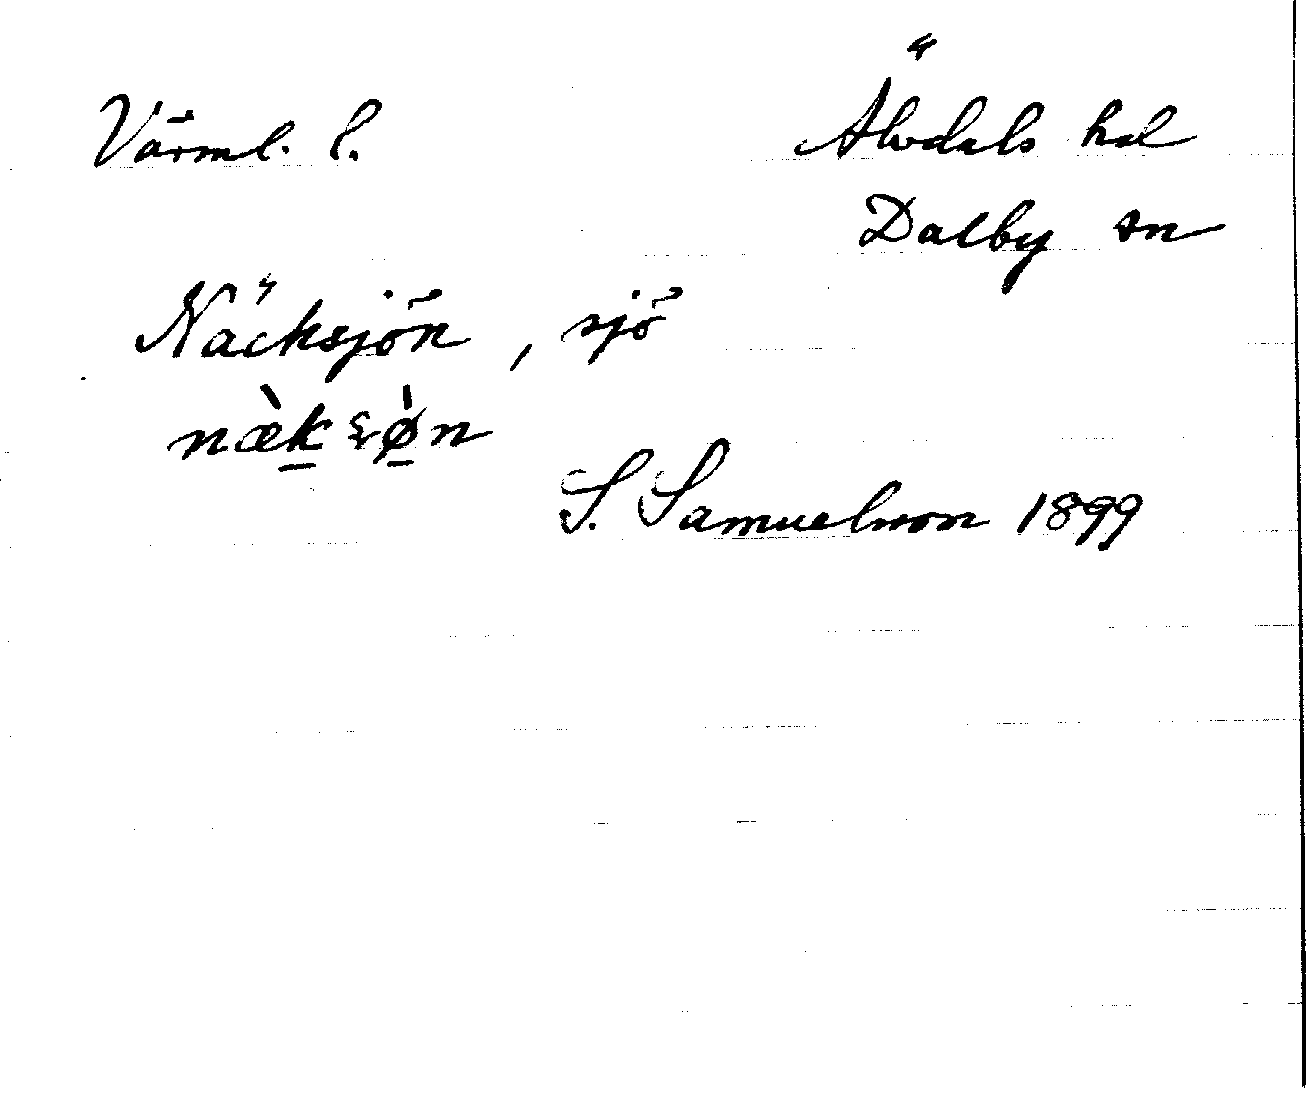 Värml. l. Älvdals hd
Dalby sn
Näcksjön, sjö
S. Samuelsson 1899